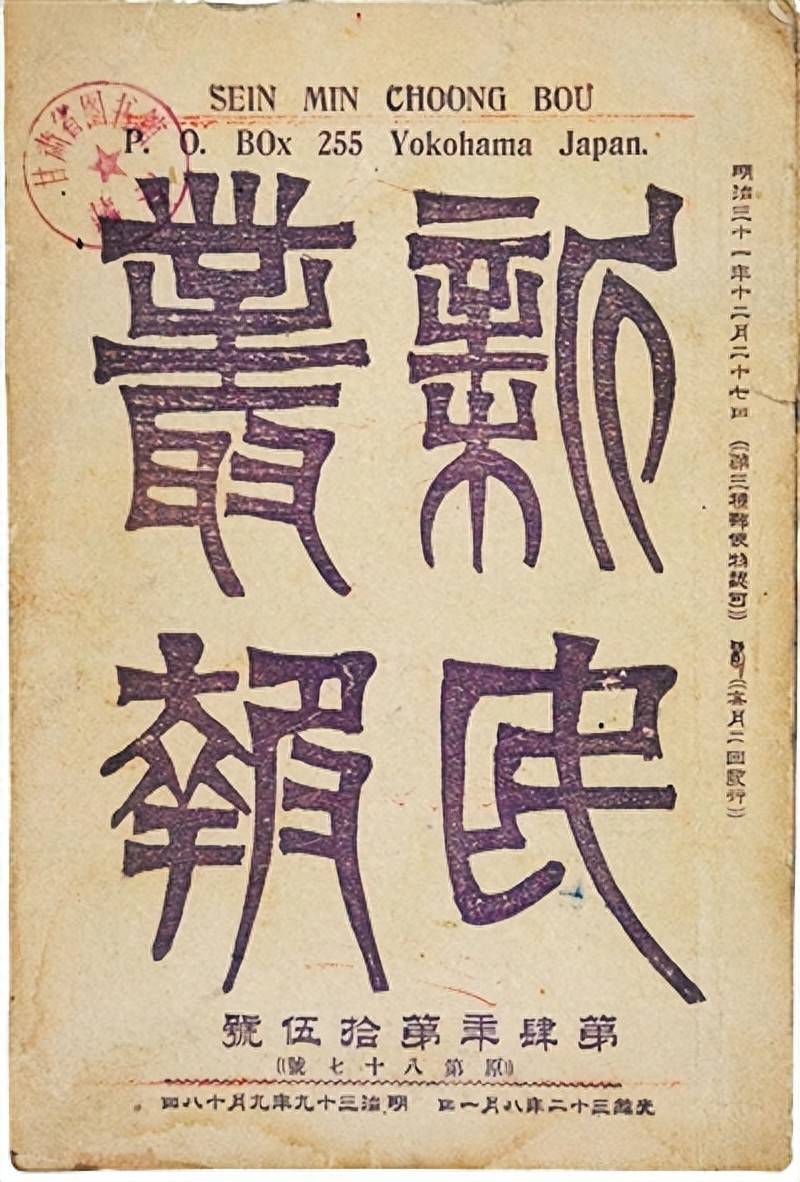 SEIN MIN CHOONG BOU
P. O. BOx 255 Yokohama Japan.
新民
叢報
明治三十一年十二月二十七日（第三種郵便物認可）（每月二回發行）
第肆年第拾伍號
（原第八十七號）
光緒三十二年八月一日 明治三十九年九月十八日
甘肃省图书馆